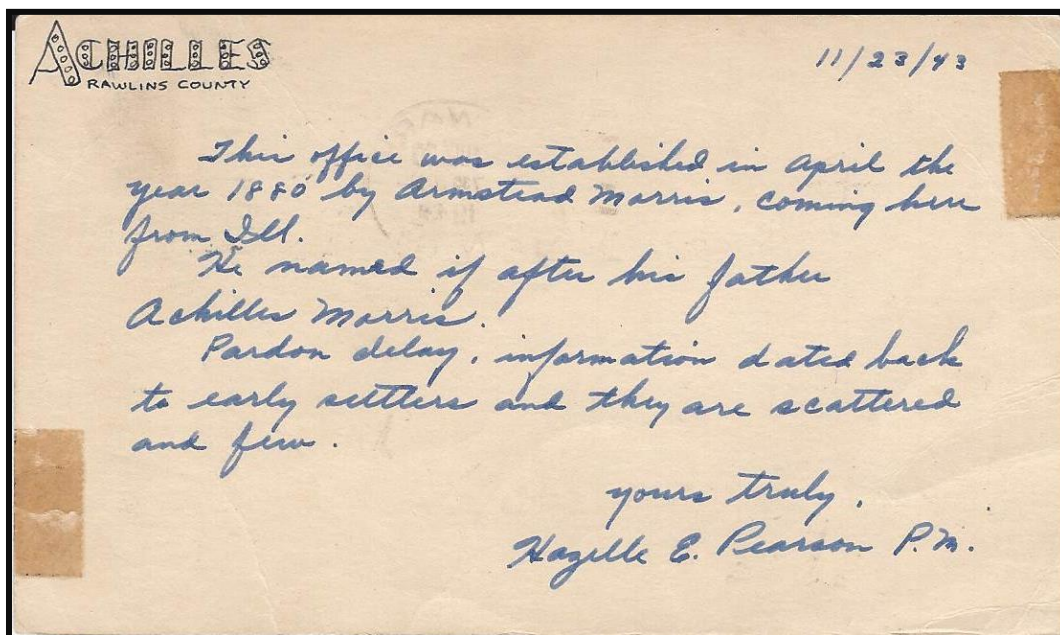 ACHILLES
RAWLINS COUNTY
11/23/43
This office was established in April the
year 1880 by Armstead Morris, coming here
from Ill.
He named if after his father
Achilles Morris.
Pardon delay, information dated back
to early settlers and they are scattered
and few.
yours truly,
Hazelle E. Pearson P.M.